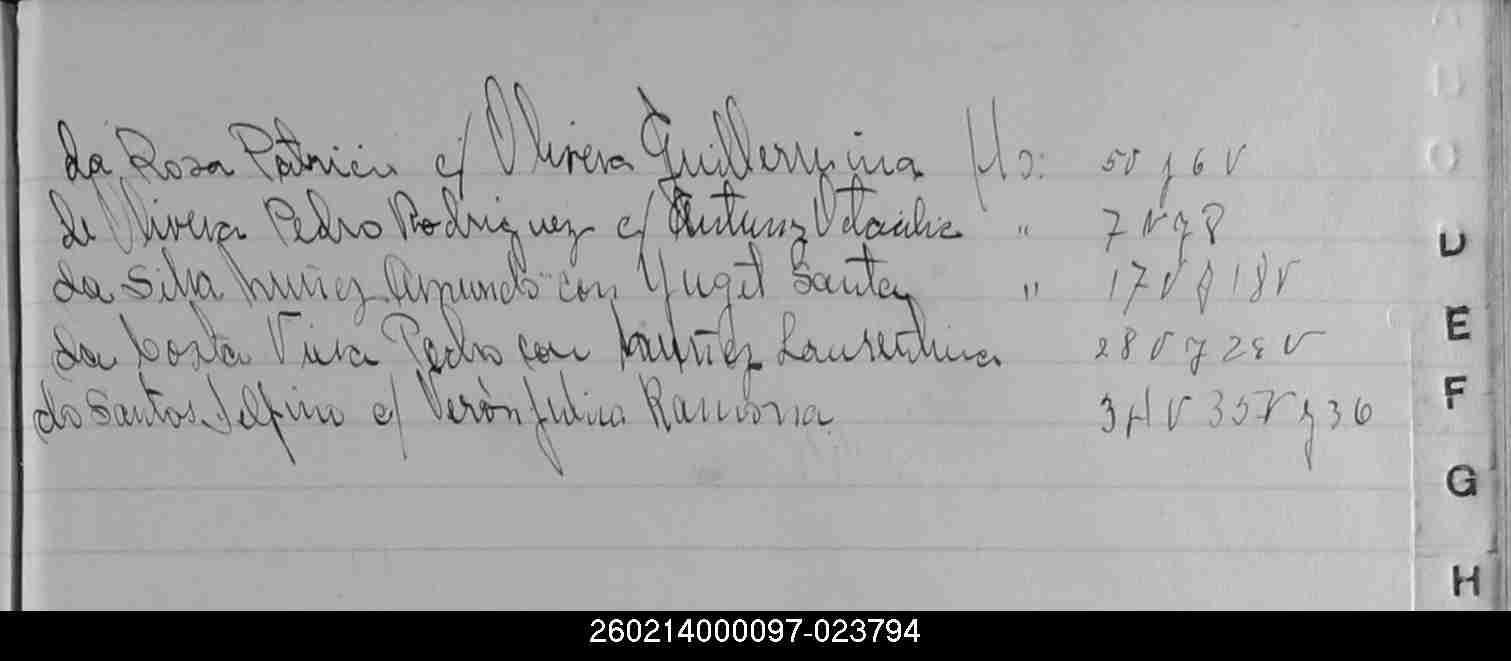 da Rosa Patricio c/ Olivera Guillermina fls: 5v y 6v
de Olivera Pedro Rodriguez c/ Antunez Otacilia " 7v y 8
da Silva Nuñez Amundo con Yuget Santa " 17v y 18v
da Costa Viera Pedro con Nuñez Laurentina 28v y 29v
do Santos Delfino c/ Verón Julia Ramona 34v 35v y 36
D
E
F
G
H
260214000097-023794